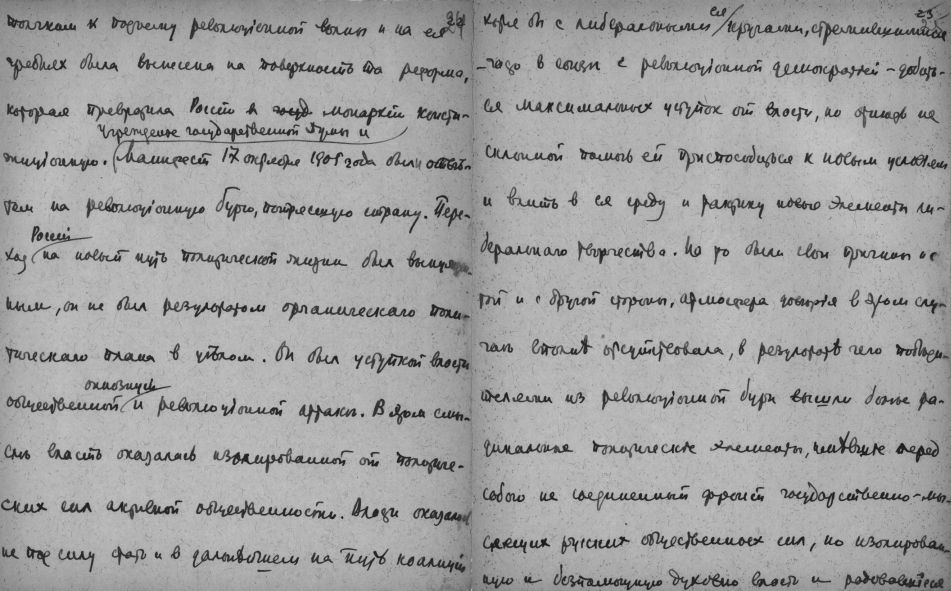 24
толчкам к подъему революціонной волны и на ея
гребнях была вынесена на поверхность та реформа,
которая превратила Россію в монархію консти-
учрежденіе государственной Думы и
туціонную. Манифест 17 октября 1905 года были отвѣ-
том на революціонную бурю, потрясшую страну. Пере-
Россіи
ход на новый путь политической жизни был вынужден-
ным, он не был результатом органическаго поли-
тическаго плана в цѣлом. Он был уступкой власти
общественной и революціонной атаки. В этом смы-
слѣ власть оказалась изолированной от политиче-
ских сил активной общественности. Власти оказалось
не под силу стать и в дальнѣйшем на путь коалиціи
25
хотя бы с либеральными ея кругами, стремившимися
в союзѣ с революціонной демократіей – добить-
ся максимальных уступок от власти, но отнюдь не
склонной помочь ей приспособиться к новым условіям
и влить в ея среду и тактику новые элементы ли-
беральнаго творчества. На то были свои причины и с
той и с другой стороны, атмосфера довѣрія в этом слу-
чаѣ вполнѣ отсутствовала, в результатѣ чего побѣди-
телями из революціонной бури вышли болѣе ра-
дикальные политическіе элементы, имѣвшіе перед
собою не соединенный фронт государственно-мы-
слящих русских общественных сил, но изолирован-
ную и безпомощную духовно власть и